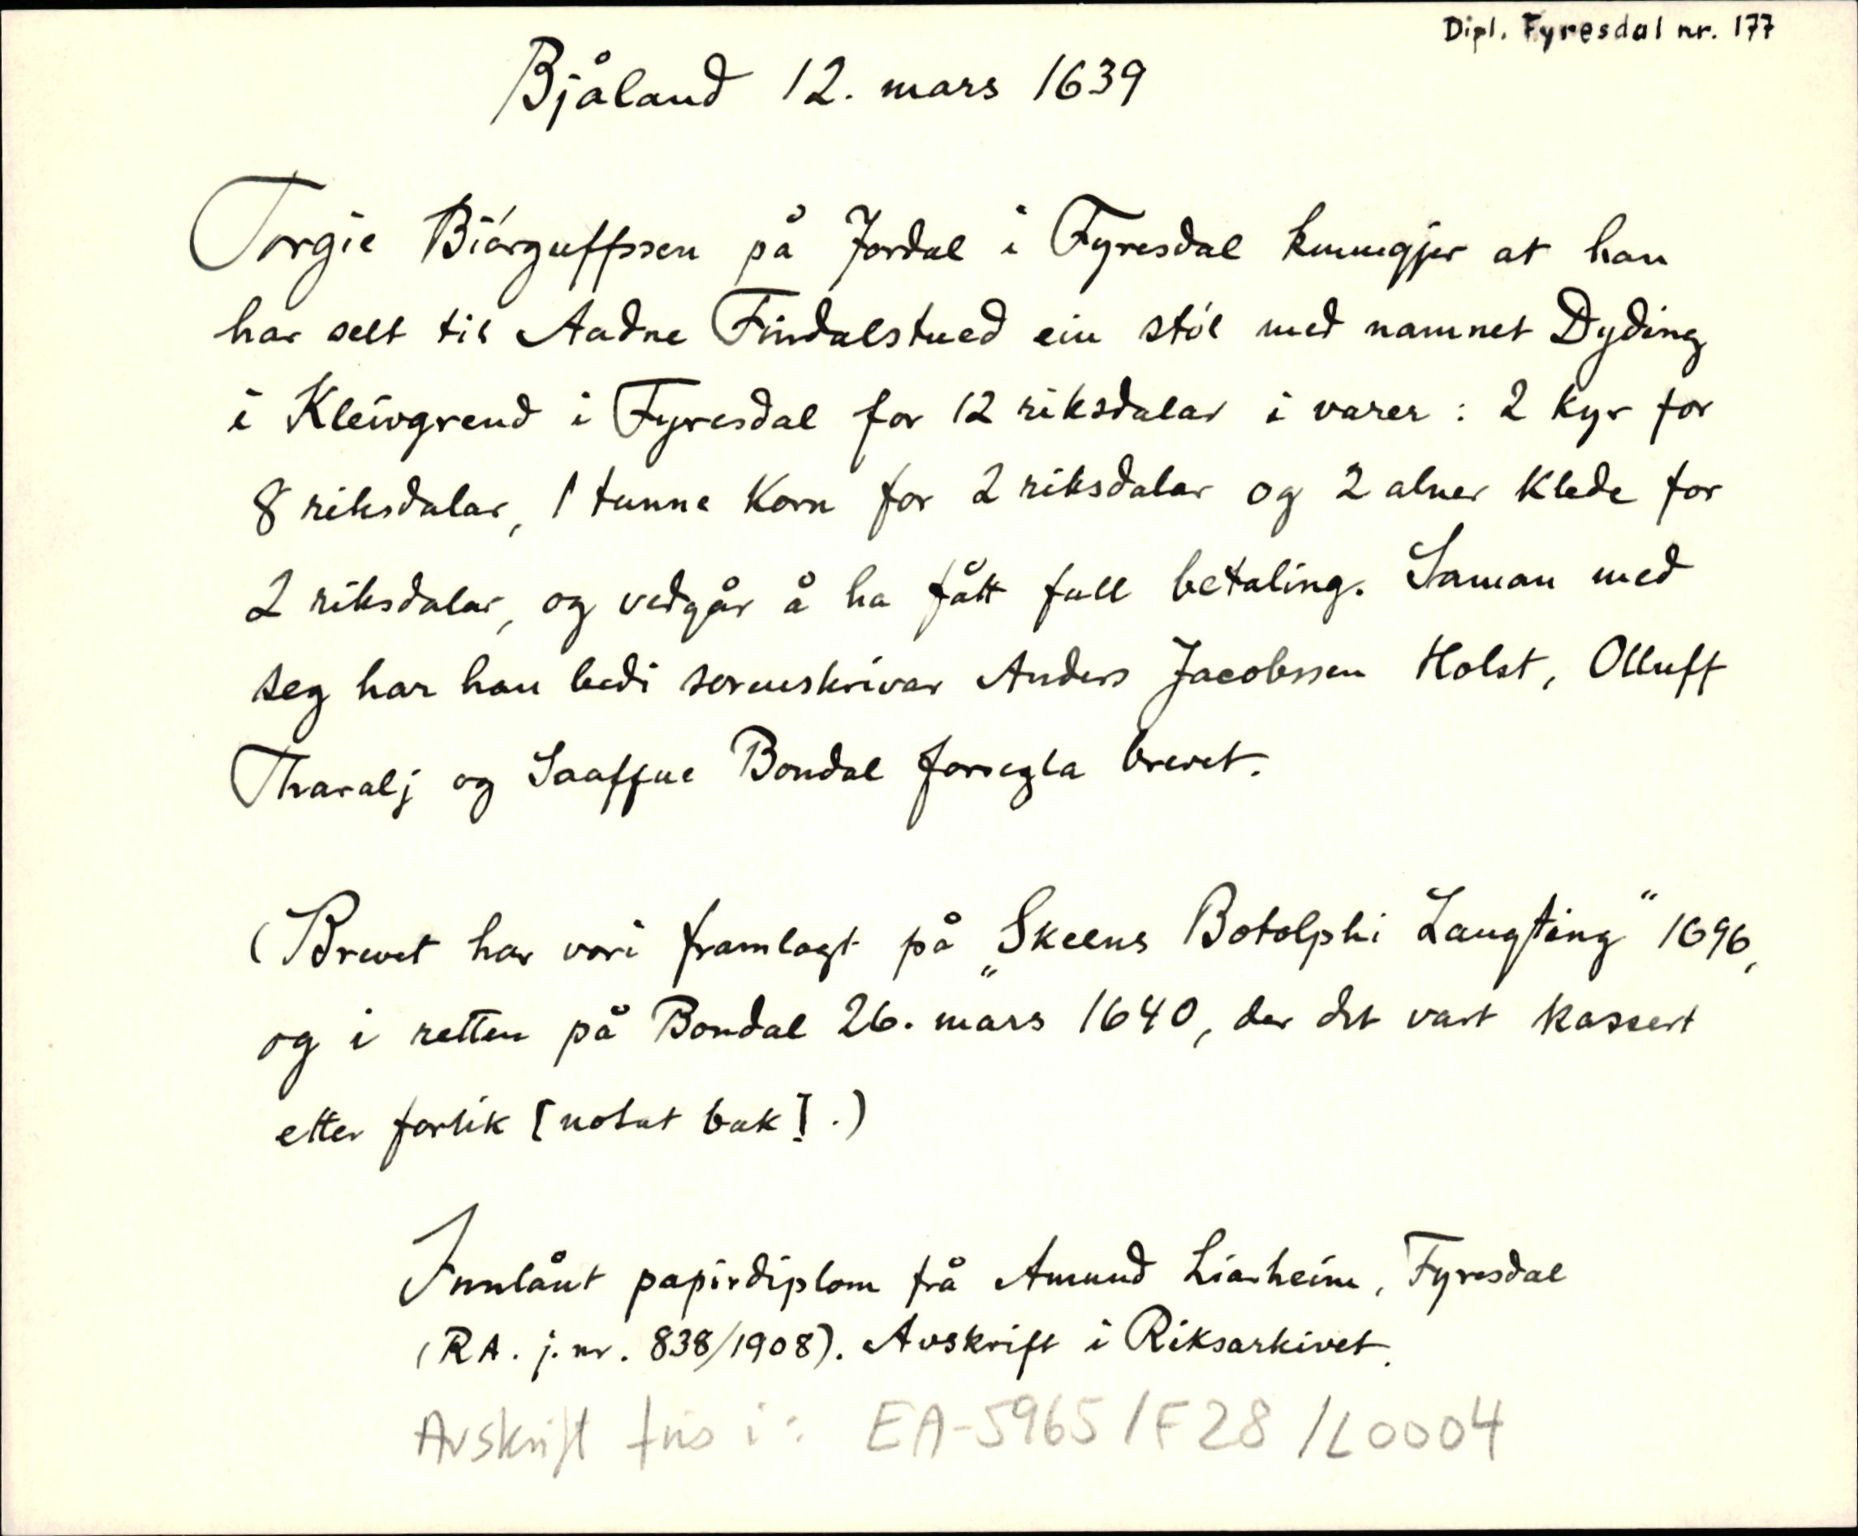 Dipl. Fyresdal nr. 177
Bjåland 12. mars 1639
Torgie Biórguffssen på Jordal i Fyresdal kunngjer at han
har selt til Aadne Findalstued ein stól med namnet Dyding
i Kleivgrend i Fyresdal for 12 riksdalar i varer : 2 kyr for
8 riksdalar, 1 tunne korn for 2 riksdalar og 2 alner klede for
2 riksdalar, og vedgår å ha fått full betaling. Saman med
seg har han bedi sorenskrivar Anders Jacobssen Holst, Olluff
Tharalj og Saaffue Bondal forsegla brevet.
(Brevet har vori framlagt på „Skeens Botolphi Laugting“ 1696,
og i retten på Bondal 26. mars 1640, der det vart kassert
etter forlik [notat bak].)
Innlånt papirdiplom frå Amund Liarheim, Fyresdal
(RA. j.nr. 838/1908). Avskrift i Riksarkivet.
Avskrift fins i: EA-5965/F28/L0004